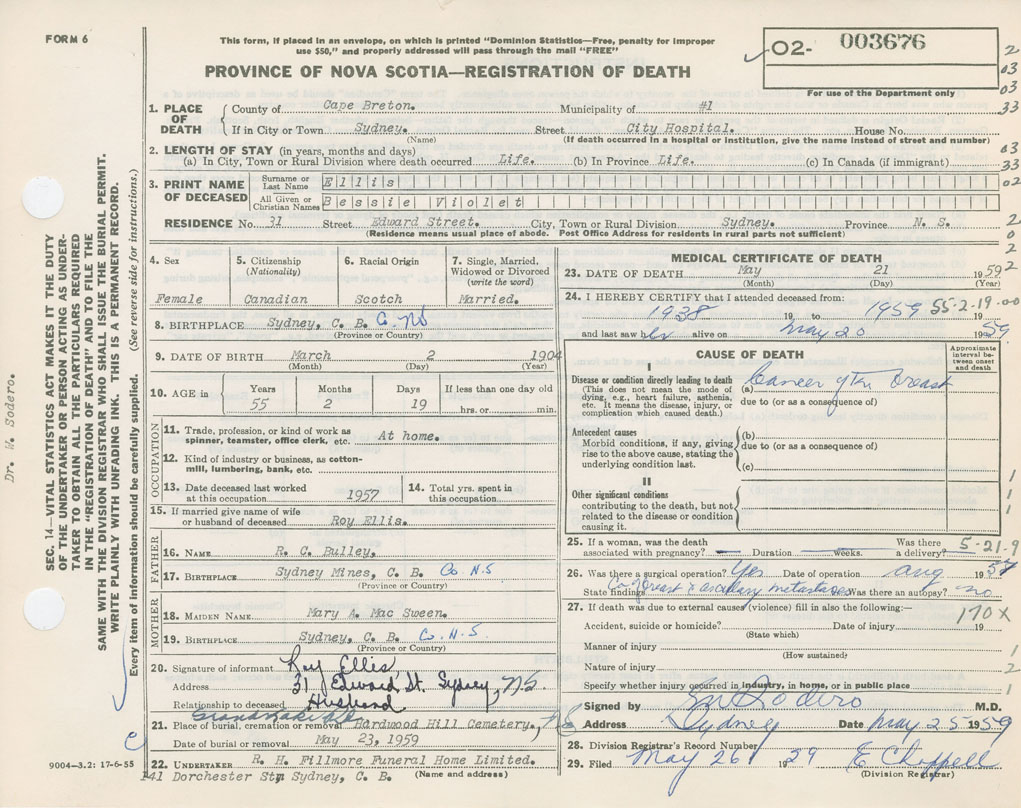 FORM 6
This form, if placed in an envelope, on which is printed "Dominion Statistics—Free, penalty for improper
use $50," and properly addressed will pass through the mail "FREE"
PROVINCE OF NOVA SCOTIA—REGISTRATION OF DEATH
02- 003676
For use of the Department only
1. PLACE OF DEATH County of Cape Breton. Municipality of #1
If in City or Town Sydney. Street City Hospital. House No.
(Name) (If death occurred in a hospital or institution, give the name instead of street and number)
2. LENGTH OF STAY (in years, months and days)
(a) In City, Town or Rural Division where death occurred Life. (b) In Province Life. (c) In Canada (if immigrant)
3. PRINT NAME OF DECEASED Surname or Last Name Ellis
All Given or Christian Names Bessie Violet
RESIDENCE No. 31 Street Edward Street. City, Town or Rural Division Sydney. Province N. S.
(Residence means usual place of abode. Post Office Address for residents in rural parts not sufficient)
4. Sex
Female
5. Citizenship
(Nationality)
Canadian
6. Racial Origin
Scotch
7. Single, Married,
Widowed or Divorced
(write the word)
Married.
8. BIRTHPLACE Sydney, C. B. Co. NS
(Province or Country)
9. DATE OF BIRTH March 2 1904
(Month) (Day) (Year)
10. AGE in
Years Months Days If less than one day old
55 2 19 hrs. or min.
OCCUPATION
11. Trade, profession, or kind of work as
spinner, teamster, office clerk, etc. At home.
12. Kind of industry or business, as cotton-
mill, lumbering, bank, etc.
13. Date deceased last worked
at this occupation 1957
14. Total yrs. spent in
this occupation
15. If married give name of wife
or husband of deceased Roy Ellis.
FATHER
16. NAME R. C. Bulley,
17. BIRTHPLACE Sydney Mines, C. B. Co N.S
(Province or Country)
MOTHER
18. MAIDEN NAME Mary A. Mac Sween.
19. BIRTHPLACE Sydney, C. B. Co. N.S.
(Province or Country)
20. Signature of informant Roy Ellis
Address 31 Edward St. Sydney, N.S.
Relationship to deceased Husband
21. Place of burial, cremation or removal Hardwood Hill Cemetery.
Date of burial or removal May 23, 1959
22. UNDERTAKER R. H. Fillmore Funeral Home Limited.
141 Dorchester St. Sydney, C. B. (Name and address)
9004—3.2: 17-6-55
MEDICAL CERTIFICATE OF DEATH
23. DATE OF DEATH May 21 1959
(Month) (Day) (Year)
24. I HEREBY CERTIFY that I attended deceased from:
1938 19 to 1959 19
55-2-19-00
and last saw her alive on May 20 1959
CAUSE OF DEATH
Approximate
interval be-
tween onset
and death
I
Disease or condition directly leading to death
(This does not mean the mode of
dying, e.g., heart failure, asthenia,
etc. It means the disease, injury, or
complication which caused death.)
(a) Cancer of the Breast
due to (or as a consequence of)
Antecedent causes
Morbid conditions, if any, giving
rise to the above cause, stating the
underlying condition last.
(b)
due to (or as a consequence of)
(c)
II
Other significant conditions
contributing to the death, but not
related to the disease or condition
causing it.
25. If a woman, was the death
associated with pregnancy? — Duration weeks. Was there
a delivery?
5-21-9
26. Was there a surgical operation? Yes Date of operation Aug 1957
State findings Ca Breast & axillary metastases Was there an autopsy? no
27. If death was due to external causes (violence) fill in also the following:—
170X
Accident, suicide or homicide? Date of injury 19
(State which)
Manner of injury
(How sustained)
Nature of injury
Specify whether injury occurred in industry, in home, or in public place
Signed by Sodero M.D.
Address Sydney Date May 25 1959
28. Division Registrar's Record Number
29. Filed May 26 1929 E Chappell
(Division Registrar)
SEC. 14—VITAL STATISTICS ACT MAKES IT THE DUTY
OF THE UNDERTAKER OR PERSON ACTING AS UNDER-
TAKER TO OBTAIN ALL THE PARTICULARS REQUIRED
IN THE "REGISTRATION OF DEATH" AND TO FILE THE
SAME WITH THE DIVISION REGISTRAR WHO SHALL ISSUE THE BURIAL PERMIT.
WRITE PLAINLY WITH UNFADING INK. THIS IS A PERMANENT RECORD.
Every item of information should be carefully supplied. (See reverse side for instructions.)
Dr. W. Sodero.
2
03
03
33
03
33
02
2
0
2
2
1
1
1
1
2
1